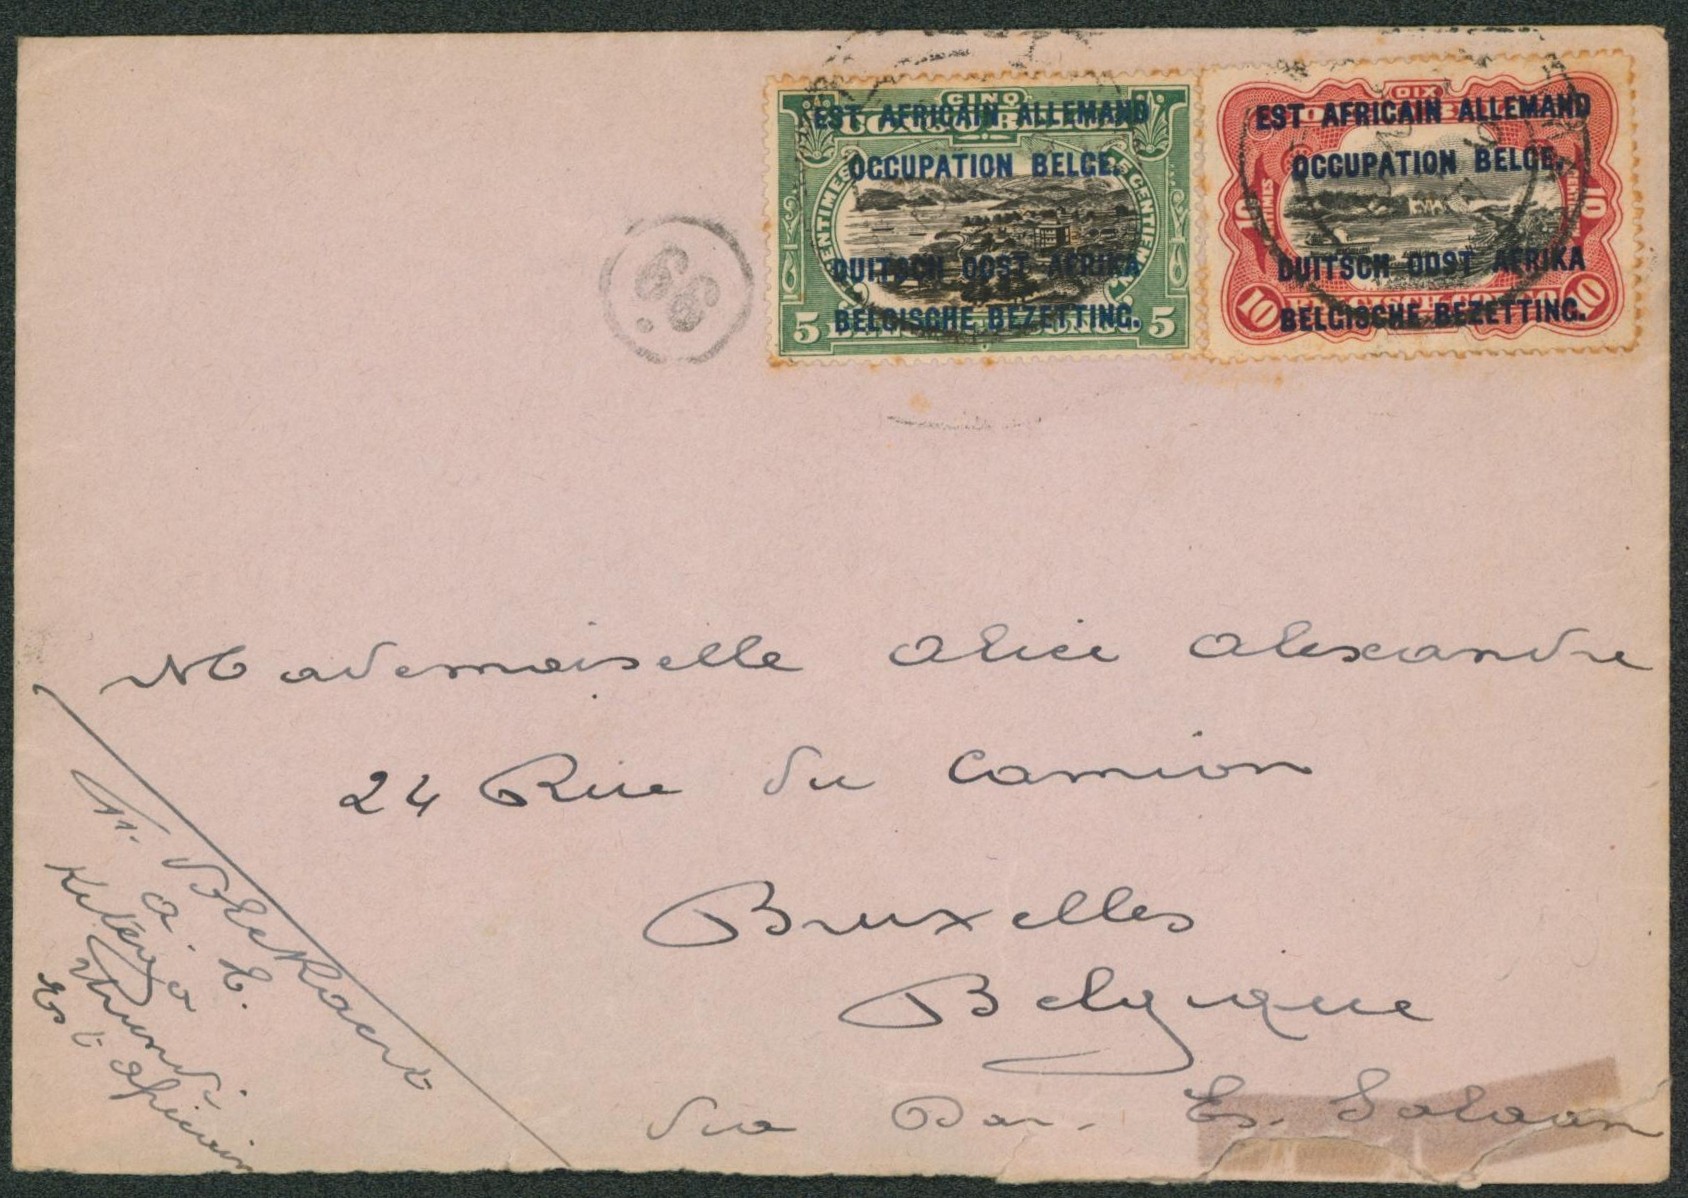 CINQ
EST AFRICAIN ALLEMAND
OCCUPATION BELGE.
CENTIMES
DUITSCH OOST AFRIKA
BELGISCHE BEZETTING.
5 5
DIX
EST AFRICAIN ALLEMAND
OCCUPATION BELGE.
10 10
DUITSCH OOST AFRIKA
BELGISCHE BEZETTING.
10 10
99
Mademoiselle Alice Alexandre
24 Rue du Camion
Bruxelles
Belgique
Via Dar. Es. Salaam
A. E.
Kitega
Urundi
Est Africain